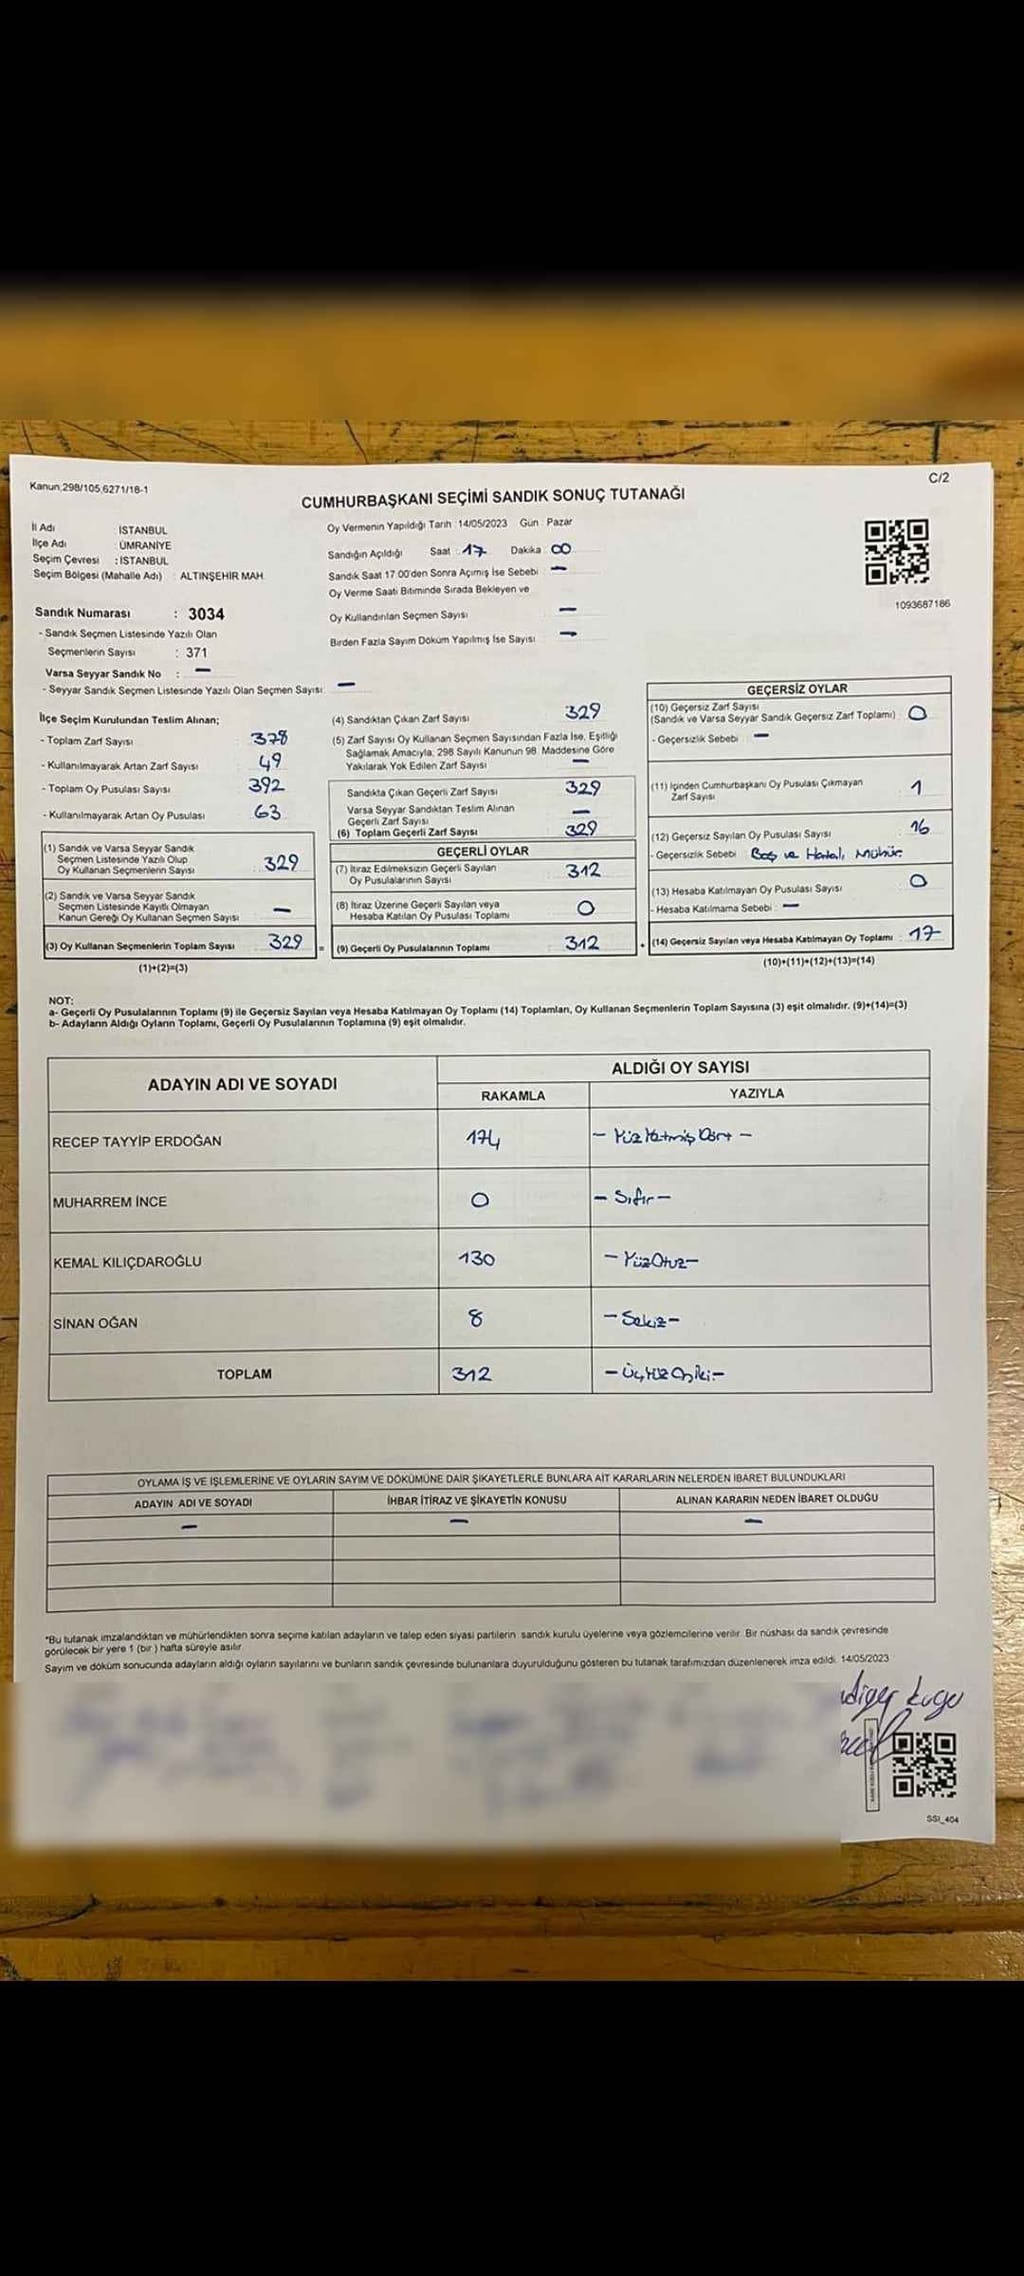 Kanun;298/105,6271/18-1
C/2
CUMHURBAŞKANI SEÇİMİ SANDIK SONUÇ TUTANAĞI
İl Adı : İSTANBUL
İlçe Adı : ÜMRANİYE
Seçim Çevresi : İSTANBUL
Seçim Bölgesi (Mahalle Adı) : ALTINŞEHİR MAH.
Sandık Numarası : 3034
- Sandık Seçmen Listesinde Yazılı Olan
Seçmenlerin Sayısı : 371
Varsa Seyyar Sandık No : —
- Seyyar Sandık Seçmen Listesinde Yazılı Olan Seçmen Sayısı: —
Oy Vermenin Yapıldığı Tarih :14/05/2023 Gün : Pazar
Sandığın Açıldığı Saat : 17 Dakika : 00
Sandık Saat 17:00'den Sonra Açımış İse Sebebi : —
Oy Verme Saati Bitiminde Sırada Bekleyen ve
Oy Kullandırılan Seçmen Sayısı : —
Birden Fazla Sayım Döküm Yapılmış İse Sayısı : —
1093687186
İlçe Seçim Kurulundan Teslim Alınan;
- Toplam Zarf Sayısı : 378
- Kullanılmayarak Artan Zarf Sayısı : 49
- Toplam Oy Pusulası Sayısı : 392
- Kullanılmayarak Artan Oy Pusulası : 63
(1) Sandık ve Varsa Seyyar Sandık
Seçmen Listesinde Yazılı Olup
Oy Kullanan Seçmenlerin Sayısı : 329
(2) Sandık ve Varsa Seyyar Sandık
Seçmen Listesinde Kayıtlı Olmayan
Kanun Gereği Oy Kullanan Seçmen Sayısı : —
(3) Oy Kullanan Seçmenlerin Toplam Sayısı : 329
(1)+(2)=(3)
(4) Sandıktan Çıkan Zarf Sayısı : 329
(5) Zarf Sayısı Oy Kullanan Seçmen Sayısından Fazla İse, Eşitliği
Sağlamak Amacıyla, 298 Sayılı Kanunun 98. Maddesine Göre
Yakılarak Yok Edilen Zarf Sayısı : —
Sandıkta Çıkan Geçerli Zarf Sayısı : 329
Varsa Seyyar Sandıktan Teslim Alınan
Geçerli Zarf Sayısı : —
(6) Toplam Geçerli Zarf Sayısı : 329
GEÇERLİ OYLAR
(7) İtiraz Edilmeksizin Geçerli Sayılan
Oy Pusulalarının Sayısı : 312
(8) İtiraz Üzerine Geçerli Sayılan veya
Hesaba Katılan Oy Pusulası Toplamı : 0
= (9) Geçerli Oy Pusulalarının Toplamı : 312
GEÇERSİZ OYLAR
(10) Geçersiz Zarf Sayısı
(Sandık ve Varsa Seyyar Sandık Geçersiz Zarf Toplamı) : 0
- Geçersizlik Sebebi : —
(11) İçinden Cumhurbaşkanı Oy Pusulası Çıkmayan
Zarf Sayısı : 1
(12) Geçersiz Sayılan Oy Pusulası Sayısı : 16
- Geçersizlik Sebebi : Boş ve Hatalı Mühür.
(13) Hesaba Katılmayan Oy Pusulası Sayısı : 0
- Hesaba Katılmama Sebebi : —
+ (14) Geçersiz Sayılan veya Hesaba Katılmayan Oy Toplamı : 17
(10)+(11)+(12)+(13)=(14)
NOT:
a- Geçerli Oy Pusulalarının Toplamı (9) ile Geçersiz Sayılan veya Hesaba Katılmayan Oy Toplamı (14) Toplamları, Oy Kullanan Seçmenlerin Toplam Sayısına (3) eşit olmalıdır. (9)+(14)=(3)
b- Adayların Aldığı Oyların Toplamı, Geçerli Oy Pusulalarının Toplamına (9) eşit olmalıdır.
ADAYIN ADI VE SOYADI
ALDIĞI OY SAYISI
RAKAMLA YAZIYLA
RECEP TAYYİP ERDOĞAN 174 — Yüz Yetmiş Dört —
MUHARREM İNCE 0 — Sıfır —
KEMAL KILIÇDAROĞLU 130 — YüzOtuz —
SİNAN OĞAN 8 — Sekiz —
TOPLAM 312 — ÜçYüz Oniki —
OYLAMA İŞ VE İŞLEMLERİNE VE OYLARIN SAYIM VE DÖKÜMÜNE DAİR ŞİKAYETLERLE BUNLARA AİT KARARLARIN NELERDEN İBARET BULUNDUKLARI
ADAYIN ADI VE SOYADI İHBAR İTİRAZ VE ŞİKAYETİN KONUSU ALINAN KARARIN NEDEN İBARET OLDUĞU
— — —
*Bu tutanak imzalandıktan ve mühürlendikten sonra seçime katılan adayların ve talep eden siyasi partilerin sandık kurulu üyelerine veya gözlemcilerine verilir. Bir nüshası da sandık çevresinde
görülecek bir yere 1 (bir ) hafta süreyle asılır.
Sayım ve döküm sonucunda adayların aldığı oyların sayılarını ve bunların sandık çevresinde bulunanlara duyurulduğunu gösteren bu tutanak tarafımızdan düzenlenerek imza edildi. 14/05/2023
SSI_404